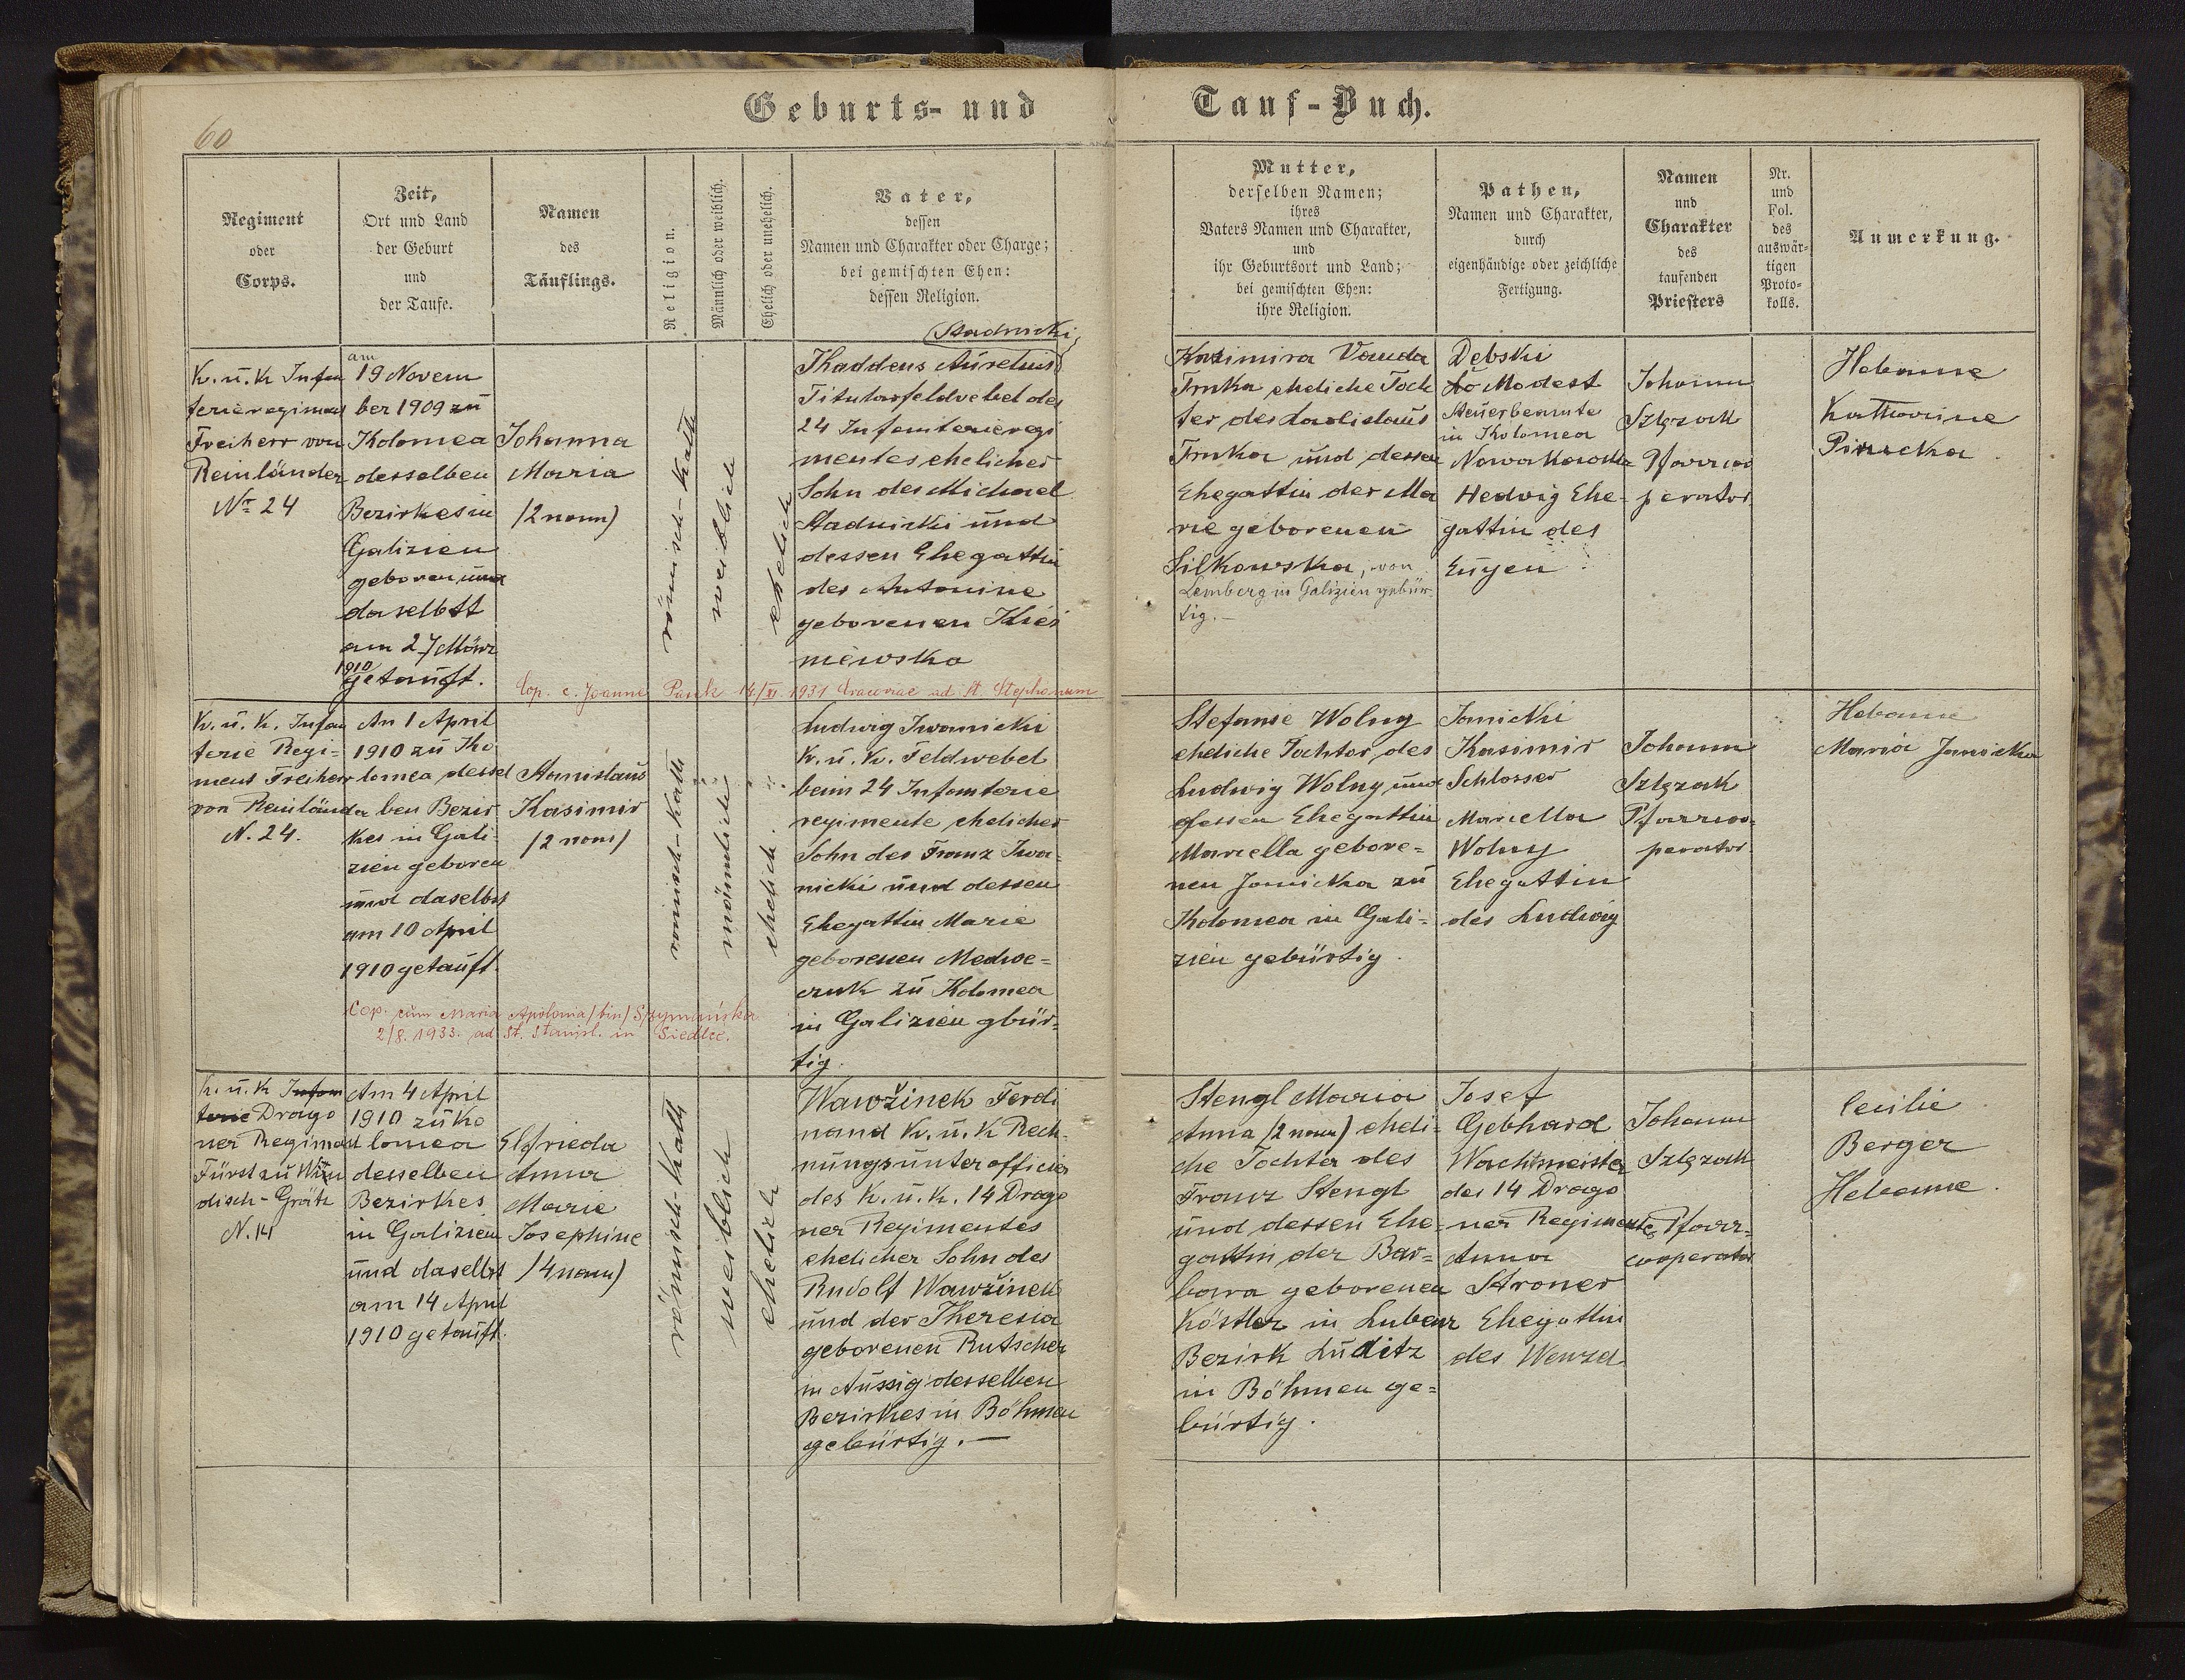 Geburts- und Tauf-Buch.
60
Regiment
oder
Corps.
Zeit,
Ort und Land
der Geburt
und
der Taufe.
Namen
des
Täuflings.
Religion.
Männlich oder weiblich.
Ehelich oder unehelich.
Vater,
dessen
Namen und Charakter oder Charge;
bei gemischten Ehen:
dessen Religion.
Mutter,
derselben Namen;
ihres
Vaters Namen und Charakter,
und
ihr Geburtsort und Land;
bei gemischten Ehen:
ihre Religion.
Pathen,
Namen und Charakter,
durch
eigenhändige oder zeichliche
Fertigung.
Namen
und
Charakter
des
taufenden
Priesters
Nr.
und
Fol.
des
auswär-
tigen
Proto-
kolls.
Anmerkung.
K. u. K Infan
terieregiment
Freiherr von
Reinländer
Nr 24
am
19 Novem
ber 1909 zu
Kolomea
desselben
Bezirkes in
Galizien
geboren und
daselbst
am 27 März
1910
getauft.
Johanna
Maria
/2 nom)
römisch-kath
weiblich
ehelich
Stadnicki
Thaddeus Aurelius
Titularfeldwebel des
24 Infanterieregi
mentes ehelicher
Sohn des Michael
Stadnicki und
dessen Ehegattin
der Antonine
geborenen
Cop. c. Joanne 14/XI 1931 Cracoviae ad St. Stephanum
Kazimira Vanda
Trnka eheliche Toch
ter des Ladislaus
Trnka und dessen
Ehegattin der Ma
rie geborenen
Silkowska, von
Lemberg in Galizien gebür
tig.-
Dębski
Modest
Steuerbeamte
in Kolomea
Hedwig Ehe-
gattin des
Eugen
Johann
Szlęzak
Pfarrcoo
perator
Hebamme
Katharine
K. u. K. Infan
terie Regi-
ment Freiherr
von Reinländer
N. 24.
An 1 April
1910 zu Ko
lomea dessel
ben Bezir
kes in Gali-
zien geboren
und daselbst
am 10 April
1910 getauft.
Stanislaus
Kasimir
/2 nom/
römisch-kath
männlich
ehelich.
Ludwig Iwanicki
K. u. K. Feldwebel
beim 24 Infanterie
regimente ehelicher
Sohn des Franz Iwa-
nicki und dessen
Ehegattin Marie
geborenen Medwe-
czuk zu Kolomea
in Galizien gbür-
tig.
Cop. cum Maria Apolonia /bin/ Szymańska
2/8. 1933. ad St. Stanisl. in Siedlce.
Stefanie Wolny
eheliche Tochter des
Ludwig Wolny und
dessen Ehegattin
Marcella gebore-
nen Janicka zu
Kolomea in Gali-
zien gebürtig.
Janicki
Kasimir
Schlosser
Marcella
Wolny
Ehegattin
des Ludwig
Johann
Szlęzak
Pfarrcoo-
perator
Hebamme
Maria Janicka
K. u. K Infan
terie Drago
ner Regiment
Fürst zu Win
disch-Grätz
N. 14
Am 4 April
1910 zu Ko
lomea
desselben
Bezirkes
in Galizien
und daselbst
am 14 April
1910 getauft.
Elfrieda
Anna
Marie
Josephine
/4 nom)
römisch-kath
weiblich
ehelich
Wawžinek Ferdi
nand K. u. K Rech-
nungsunterofficier
des K. u. K. 14 Drago
ner Regimentes
ehelicher Sohn des
Rudolf Wawžinek
und der Theresia
geborenen Rutscher
in Aussig desselben
Bezirkes in Böhmen
gebürtig.-
Stengl Maria
Anna (2 nom) eheli-
che Tochter des
Franz Stengl
und dessen Ehe-
gattin der Bar-
bara geborenen
Köstler in Lubenz
Bezirk Luditz
in Böhmen ge-
bürtig.
Josef
Gebhard
Wachtmeister
des 14 Drago
ner Regimente
Anna
Stroner
Ehegattin
des Wenzel
Johann
Szlęzak
Pfarr-
cooperator
Cecilie
Berger
Hebamme.